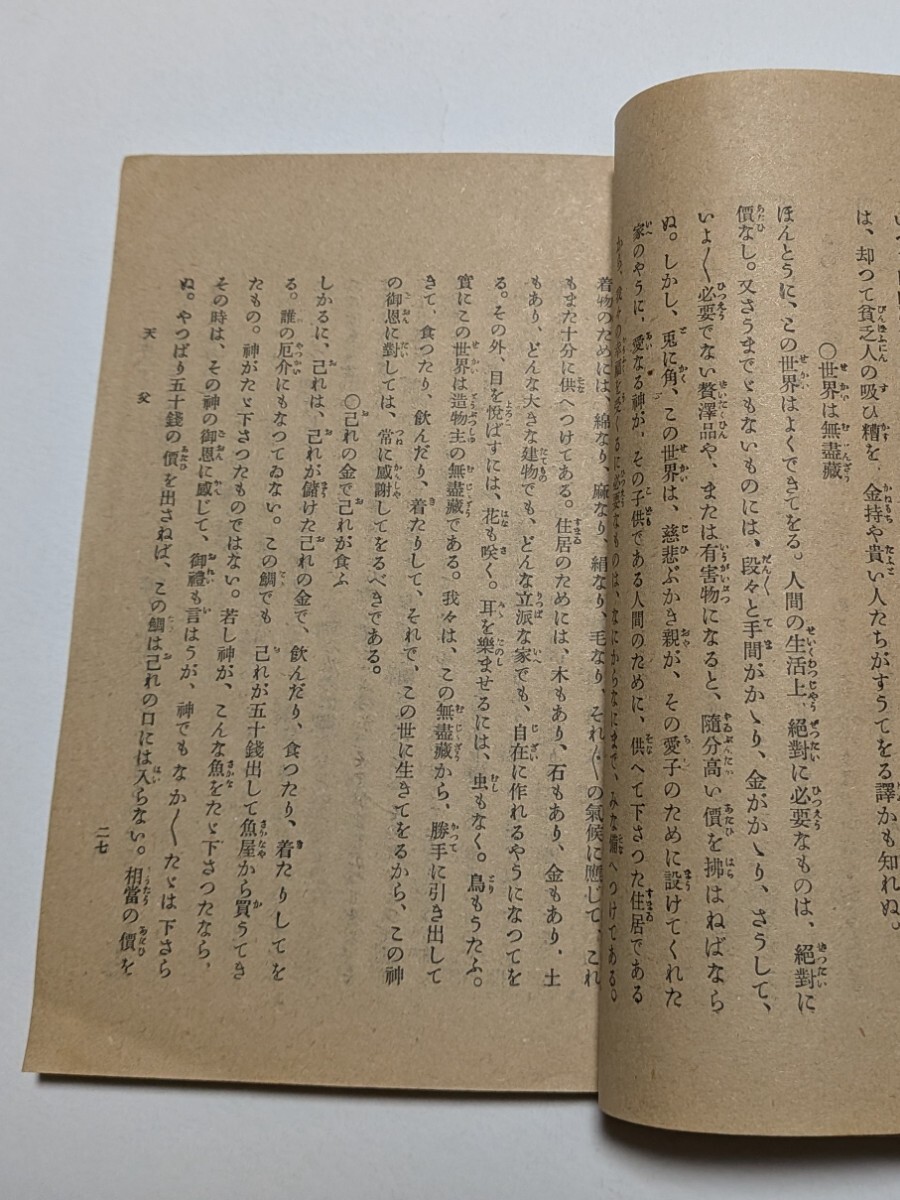 は、却つて貧乏人の吸ひ糟を、金持や貴い人たちがすうてをる譯かも知れぬ。
〇世界は無盡藏
ほんとうに、この世界はよくできてをる。人間の生活上、絕對に必要なものは、絕對に
價なし。又さうまでゞもないものには、段々と手間がかゝり、金がかゝり、さうして、
いよ〳〵必要でない贅澤品や、または有害物になると、隨分高い價を拂はねばなら
ぬ。しかし、兎に角、この世界は、慈悲ぶかき親が、その愛子のために設けてくれた
家のやうに、愛なる神が、その子供である人間のために、供へて下さつた住居である
必要なものは、なにからなにまで、みな備へつけてある。
着物のためには、綿なり、麻なり、絹なり、毛なり、それ〴〵の氣候に應じて、これ
もまた十分に供へつけてある。住居のためには、木もあり、石もあり、金もあり、土
もあり、どんな大きな建物でも、どんな立派な家でも、自在に作れるやうになつてを
る。その外、目を悅ばすには、花も咲く。耳を樂ませるには、虫もなく。鳥もうたふ。
實にこの世界は造物主の無盡藏である。我々は、この無盡藏から、勝手に引き出して
きて、食つたり、飲んだり、着たりして、それで、この世に生きてをるから、この神
の御恩に對しては、常に感謝してをるべきである。
〇己れの金で己れが食ふ
しかるに、己れは、己れが儲けた己れの金で、飲んだり、食つたり、着たりしてを
る。誰の厄介にもなつてゐない。この鯛でも 己れが五十錢出して魚屋から買うてき
たもの。神がたゞ下さつたものではない。若し神が、こんな魚をたゞ下さつたなら、
その時は、その神の御恩に感じて、御禮も言はうが、神でもなか〳〵たゞは下さら
ぬ。やつぱり五十錢の價を出さねば、この鯛は己れの口には入らない。相當の價を
天父
二七